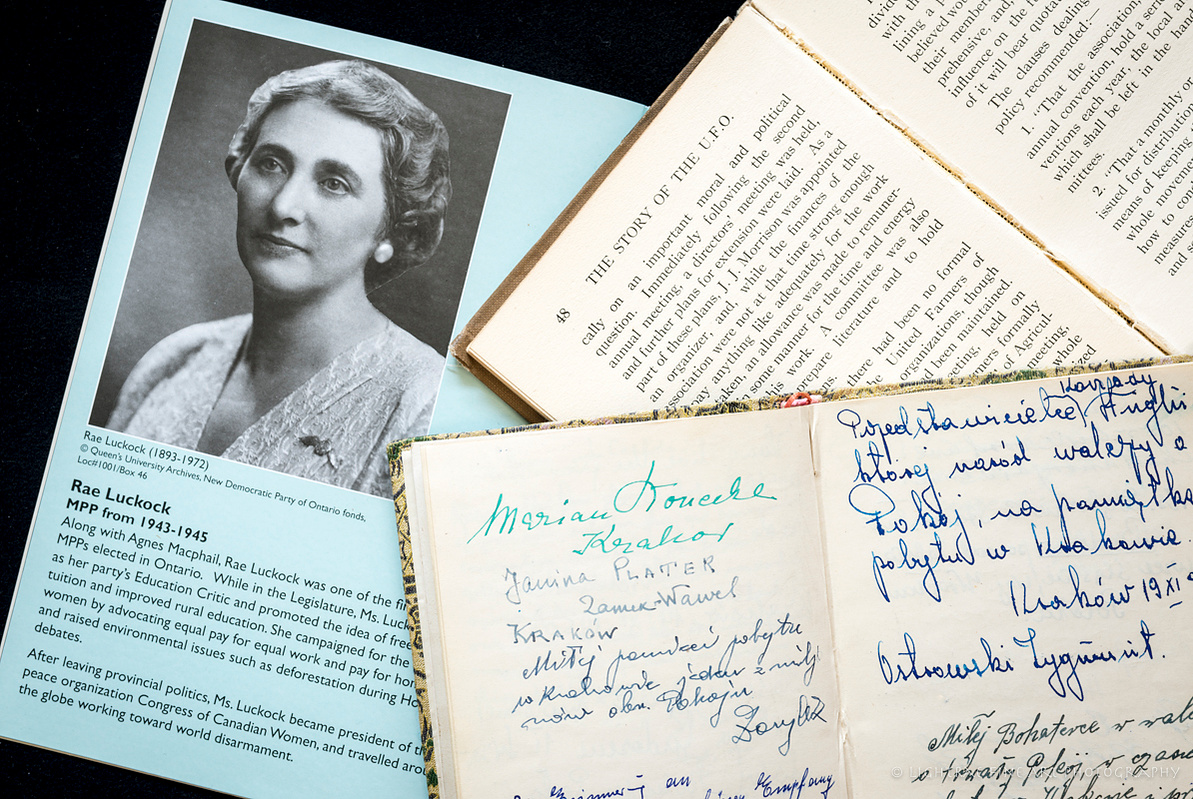 Rae Luckock (1893-1972)
© Queen's University Archives, New Democratic Party of Ontario fonds,
Loc#1001/Box 46
Rae Luckock
MPP from 1943-1945
Along with Agnes Macphail, Rae Luckock was one of the fir
MPPs elected in Ontario. While in the Legislature, Ms. Luck
as her party's Education Critic and promoted the idea of free
tuition and improved rural education. She campaigned for the
women by advocating equal pay for equal work and pay for hom
and raised environmental issues such as deforestation during Ho
debates.
After leaving provincial politics, Ms. Luckock became president of th
peace organization Congress of Canadian Women, and travelled arou
the globe working toward world disarmament.
48 THE STORY OF THE U.F.O.
cally on an important moral and political
question. Immediately following the second
annual meeting, a directors' meeting was held,
and further plans for extension were laid. As a
part of these plans, J. J. Morrison was appointed
an organizer, and, while the finances of the
association were not at that time strong enough
pay anything like adequately for the work
taken, an allowance was made to remuner-
in some manner for the time and energy
his work. A committee was also
prepare literature and to hold
here had been no formal
United Farmers of
organizations, though
d been maintained.
eeting, held on
mers formally
of Agricul-
meeting,
whole
ized
divid
with th
lining a p
believed wou
their member
prehensive, and
influence on the fu
of it will bear quotat
The clauses dealing
policy recommended:—
1. "That the association
annual convention, hold a seri
ventions each year, the local
which shall be left in the han
mittees.
2. "That a monthly or
issued for distributio
means of keeping
whole moveme
how to co
measures
and s
Marian Konieczke
Kraków
Janina PLATER
Zamek-Wawel
KRAKÓW
Miłej pamięci pobytu
w Krakowie jeden z milj
nów obr. Pokoju
Kanady
Przedstawicielce Anglii
której naród walczy o
Pokój, na pamiątkę
pobytu w Krakowie.
Kraków 19 XI
Ostrowski Zygmunt.
Miłej Bohaterce w walce
o trwały Pokój, w czasie
Erinnerung an
Empfang